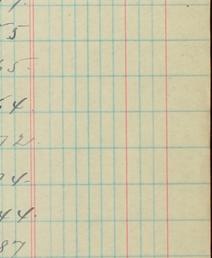 1.
55
65.
54
72
74.
44.
87